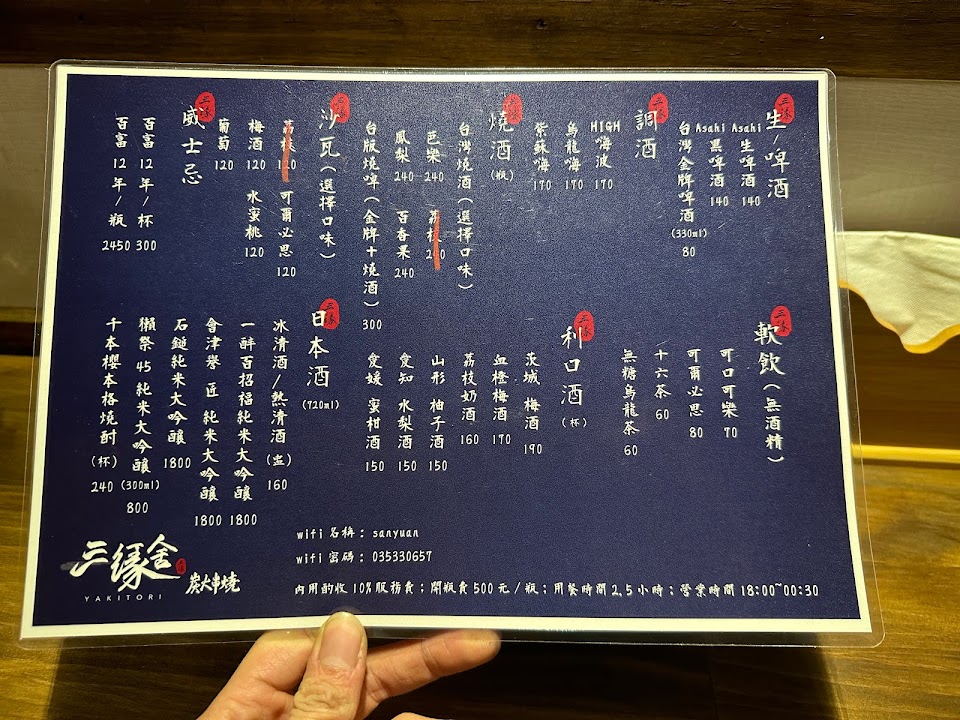 三緣
生/啤酒
Asahi 生啤酒 140
Asahi 黑啤酒 140
台灣金牌啤酒 (330ml) 80
三緣
調酒
HIGH 嗨波 170
烏龍嗨 170
紫蘇嗨 170
三緣
燒酒(瓶)
台灣燒酒(選擇口味)
芭樂 240
荔枝 240
鳳梨 240
百香果 240
台版燒啤(金牌+燒酒) 300
三緣
沙瓦(選擇口味)
荔枝 120
可爾必思 120
梅酒 120
水蜜桃 120
葡萄 120
三緣
威士忌
百富12年/杯 300
百富12年/瓶 2450
三緣
軟飲(無酒精)
可口可樂 70
可爾必思 80
十六茶 60
無糖烏龍茶 60
三緣
利口酒(杯)
茨城 梅酒 190
血橙梅酒 170
荔枝奶酒 160
山形 柚子酒 150
愛知 水梨酒 150
愛媛 蜜柑酒 150
三緣
日本酒(720ml)
冰清酒/熱清酒(壺) 160
一醉百招福純米大吟釀 1800
會津譽 匠 純米大吟釀 1800
石鎚純米大吟釀 1800
獺祭 45 純米大吟釀 (300ml) 800
千本櫻本格燒酎(杯) 240
三緣舍
YAKITORI
炭火串燒
wifi 名稱：sanyuan
wifi 密碼：035330657
內用酌收10%服務費；開瓶費500元/瓶；用餐時間2.5小時；營業時間18:00~00:30